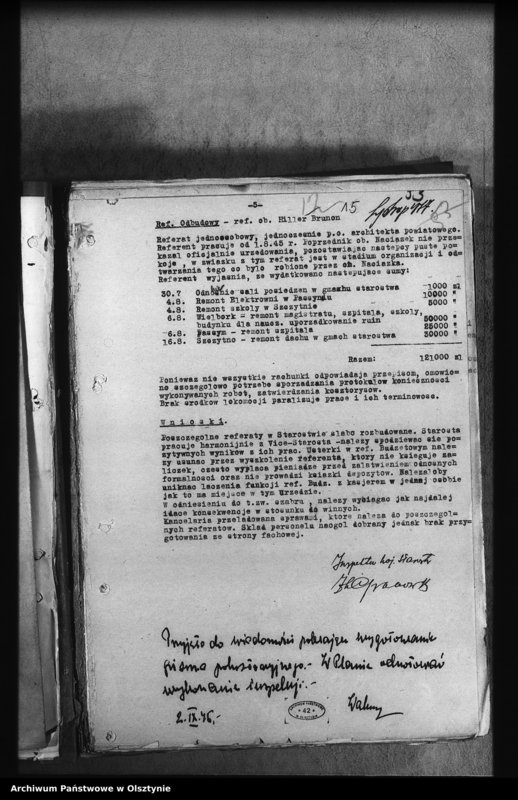 -5-
15
Ref. Odbudowy - ref. ob. Hiller Brunon
Referat jednoosobowy, jednoczesnie p.o. architekta powiatowego.
Referent pracuje od 1.8.45 r. Poprzednik ob. Naciazek nie prze-
kazal oficjalnie urzedowania, pozostawiajac nastepcy puste po-
koje, w zwiazku z tym referat jest w stadium organizacji i od-
twarzania tego co bylo robione przez ob. Naciazka.
Referent wyjasnia, ze wydatkowano nastepujace sumy:
30.7 sali posiedzen w gmachu starostwa -1000 zl
4.8. Remont Elektrowni w Passymiu 10000 "
4.8. Remont szkoly w Szczytnie 5000 "
6.8. Wielbork - remont magistratu, szpitala, szkoly,
budynku dla naucz. uporzadkowanie ruin 50000 "
-6.8. Passym - remont szpitala 25000 "
16.8. Szczytno - remont dachu w gmachu starostwa 30000 "
Razem: 121000 zl
Poniewaz nie wszystkie rachunki odpowiadaja przepisom, omowio-
no szczegolowo potrzebe sporzadzania protokulow koniecznosci
wykonywanych robot, zatwierdzania kosztorysow.
Brak srodkow lokomocji paralizuje prace i ich terminowosc.
W n i o s k i .
Poszczegolne referaty w Starostwie slabo rozbudowane. Starosta
pracuje harmonijnie z Vice-Starosta -nalezy spodziewac sie po-
zytywnych wynikow z ich prac. Usterki w ref. Budzetowym nale-
zy usunac przez wyszkolenie referenta, ktory nie ksieguje za-
liczek, czesto wyplaca pieniadze przed zalatwieniem odnosnych
formalnosci oraz nie prowadzi ksiazki depozytow. Nalezaloby
uniknac laczenia funkcji ref. Budz. z kasjerem w jednej osobie
jak to ma miejsce w tym Urzedzie.
W odniesieniu do t.zw. szabru , nalezy wyciagac jak najdalej
idace konsekwencje w stosunku do winnych.
Kancelaria przeladowana sprawami, ktore naleza do poszczegol-
nych referatow. Sklad personelu naogol dobrany jednak brak przy-
gotowania ze strony fachowej.
Inspektor woj. Starostw
Przyjęto do wiadomości polecając wygotowanie
pisma pokontrolnego.- W Planie odnotować
wykonanie inspekcji.-
2.IX.46,-
42
Archiwum Państwowe w Olsztynie